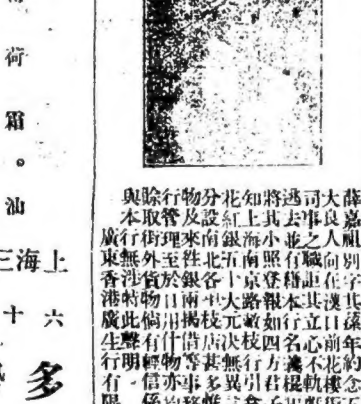 薛嘉祖別字其蓀年約念
大良人向在漢口前花樓街
司事之職詎其立心不軌
逃去並有藉本行名義棍
將其小照登報如四方君
知上海南京路敝枝行引
花紅銀五十大元決無異
分設南北各埠枝店甚
物及來往銀兩揭借等事
行管理至於日用什物亦
賒取街外貨物倘有輕信係
與本行無涉特此聲明
廣東香港廣生行有限
上海三
六十
多
荷霜。汕